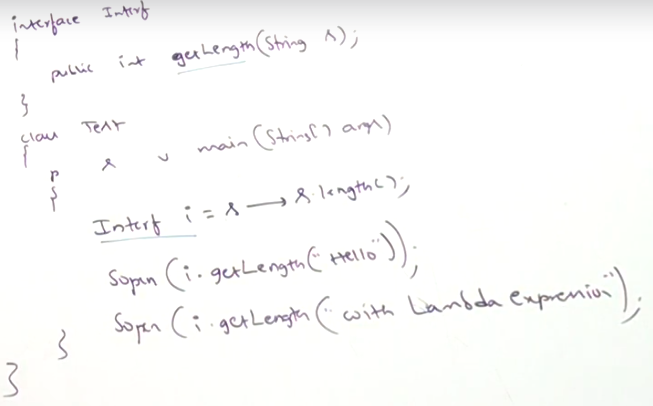 interface Interf
{
public int getLength(String s);
}
class Test
{
p s v main(String[] args)
{
Interf i = s → s.length();
Sopln(i.getLength("Hello"));
Sopln(i.getLength("with Lambda Expression"));
}
}